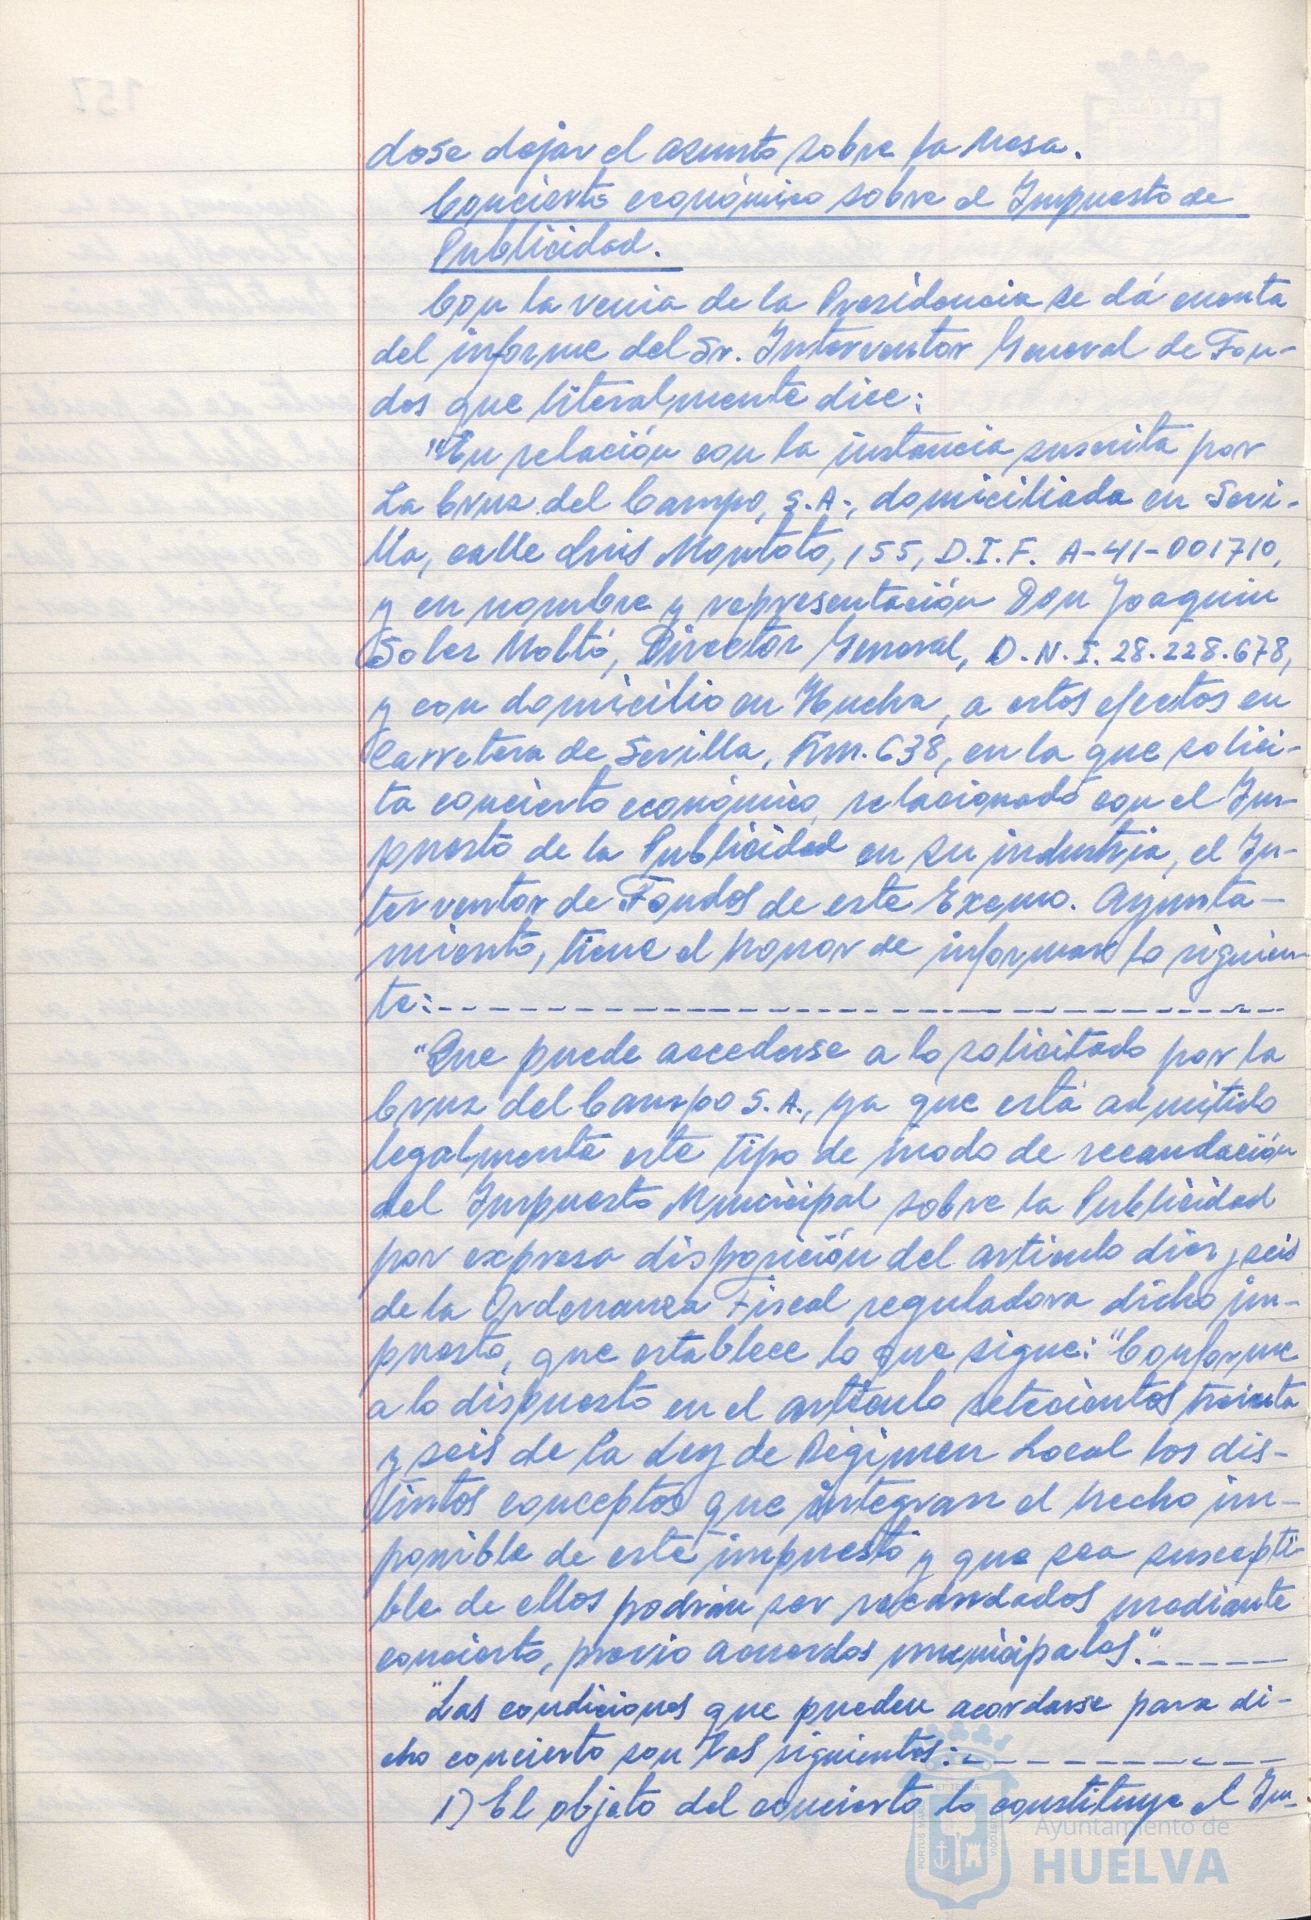 dose dejar el asunto sobre la Mesa.
Concierto económico sobre el Impuesto de
Publicidad.
Con la venia de la Presidencia se dá cuenta
del informe del Sr. Interventor General de Fon-
dos que literalmente dice:
"En relación con la instancia suscrita por
La Cruz del Campo, S.A., domiciliada en Sevi-
lla, calle Luis Montoto, 155, D.I.F. A-41-001710,
y en nombre y representación Don Joaquin
Soler Moltó, Director General, D.N.I. 28.228.678,
y con domicilio en Huelva, a estos efectos en
Carretera de Sevilla, Km. 638, en la que solici-
ta concierto económico, relacionado con el Im-
puesto de la Publicidad en su industria, el In-
terventor de Fondos de este Excmo. Ayunta-
miento, tiene el honor de informar lo siguien-
te:
"Que puede accederse a lo solicitado por la
Cruz del Campo S.A., ya que está admitido
legalmente este tipo de modo de recaudación
del Impuesto Municipal sobre la Publicidad
por expresa disposición del articulo diez y seis
de la Ordenanza Fiscal reguladora dicho im-
puesto, que establece lo que sigue: "Conforme
a lo dispuesto en el artículo setecientos treinta
y seis de la Ley de Régimen Local los dis-
tintos conceptos que integran el hecho im-
ponible de este impuesto y que sea suscepti-
ble de ellos podrán ser recaudados mediante
concierto, previo acuerdos municipales."
"Las condiciones que pueden acordarse para di-
cho concierto son las siguientes:
1) El objeto del concierto lo constituye el Im-
Ayuntamiento de
HUELVA
157